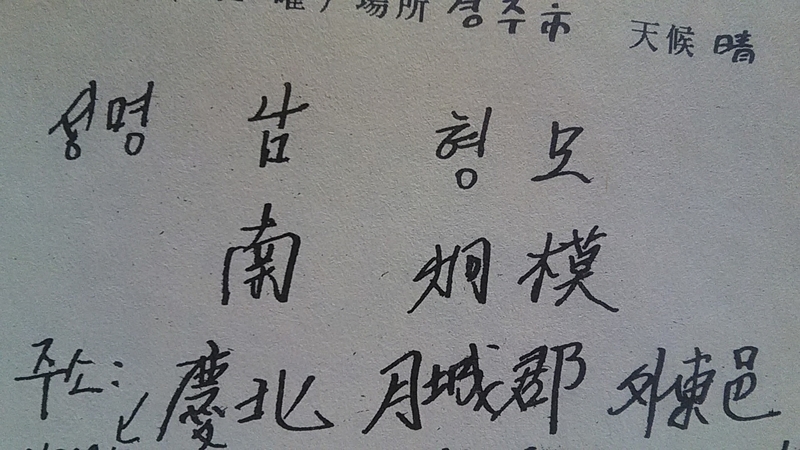 曜 / 場所 경주市
天候 晴
성명 남 형모
南 炯模
주소: 慶北 月城郡 外東邑